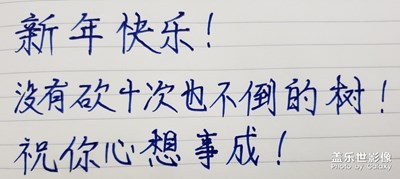 新年快乐！
没有砍十次也不倒的树！
祝你心想事成！
盖乐世影像
Photo by Galaxy